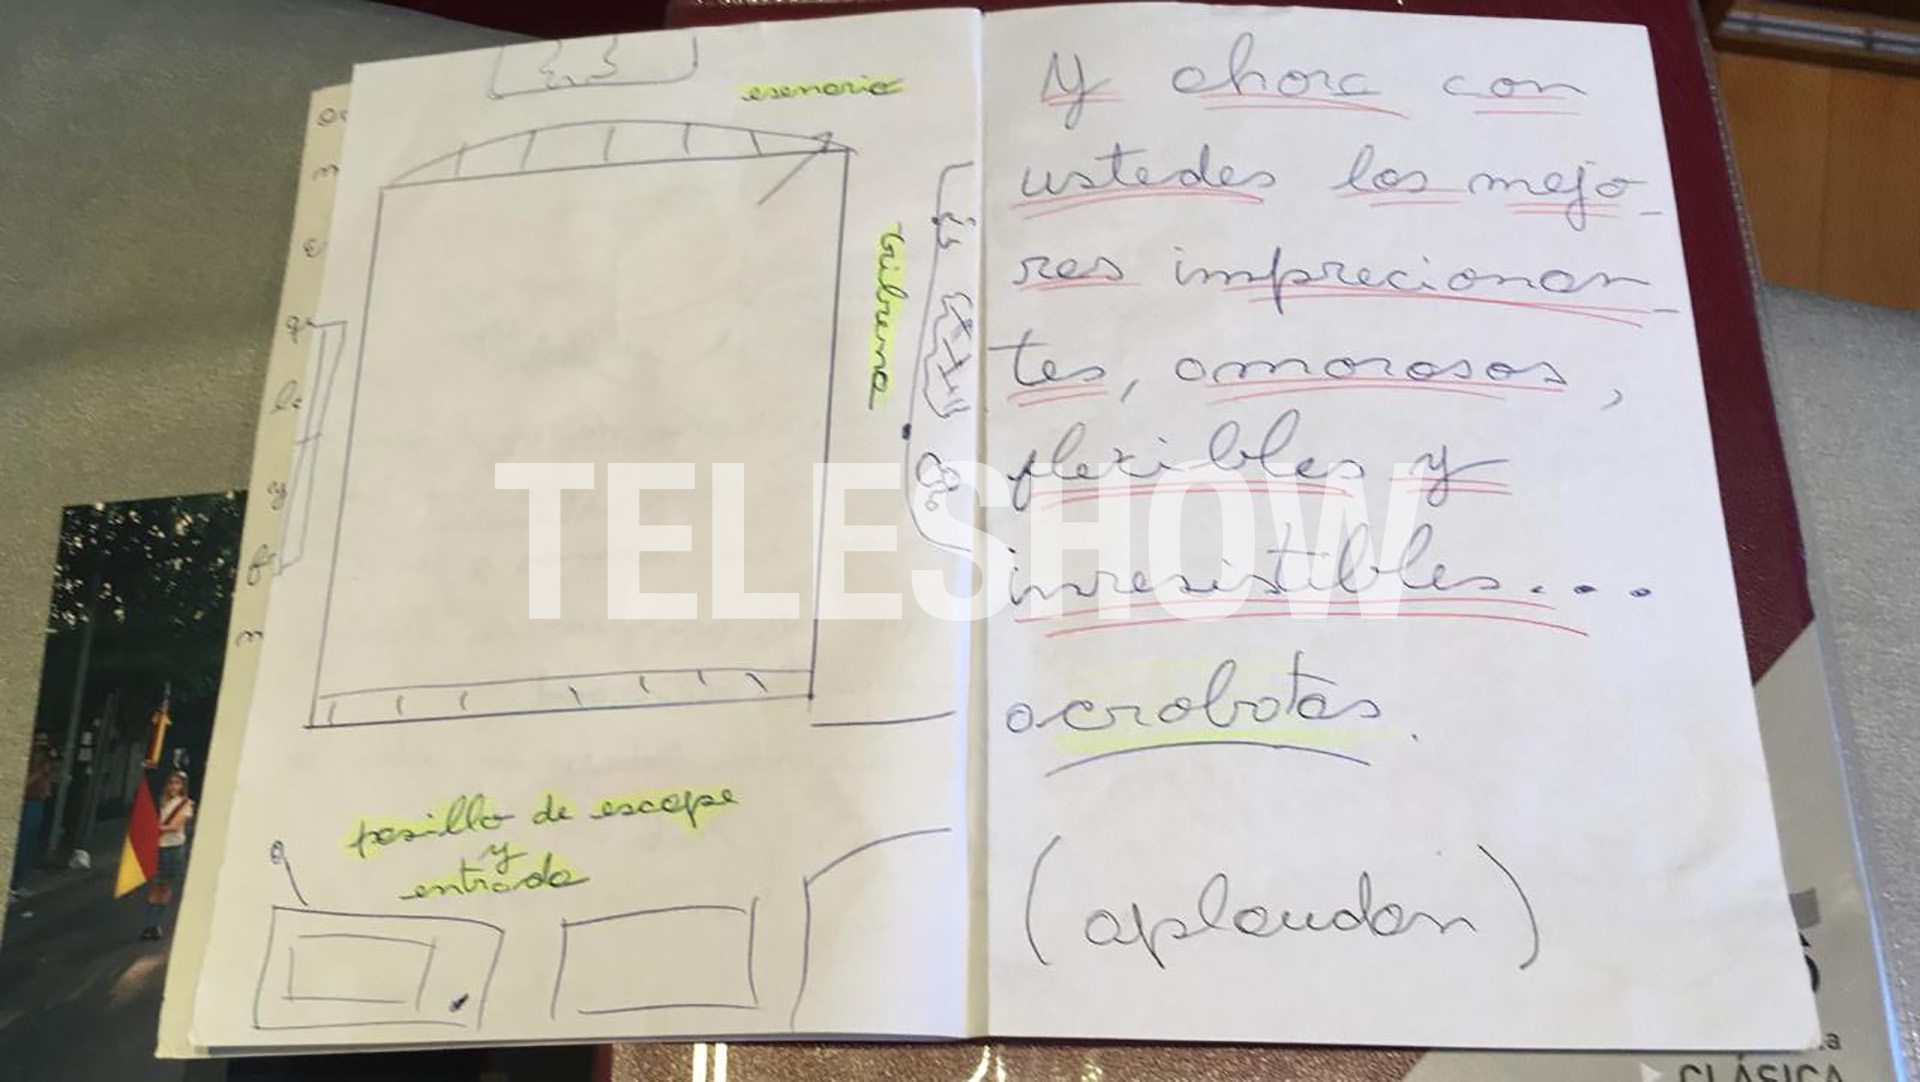 esenario
tribuna
pasillo de escape
y
entrada
Y ahora con
ustedes los mejo-
res imprecionan-
tes, amorosos,
flexibles y
irresistibles...
acrobatas.
(aplaudan)
TELESHOW
CLÁSICA